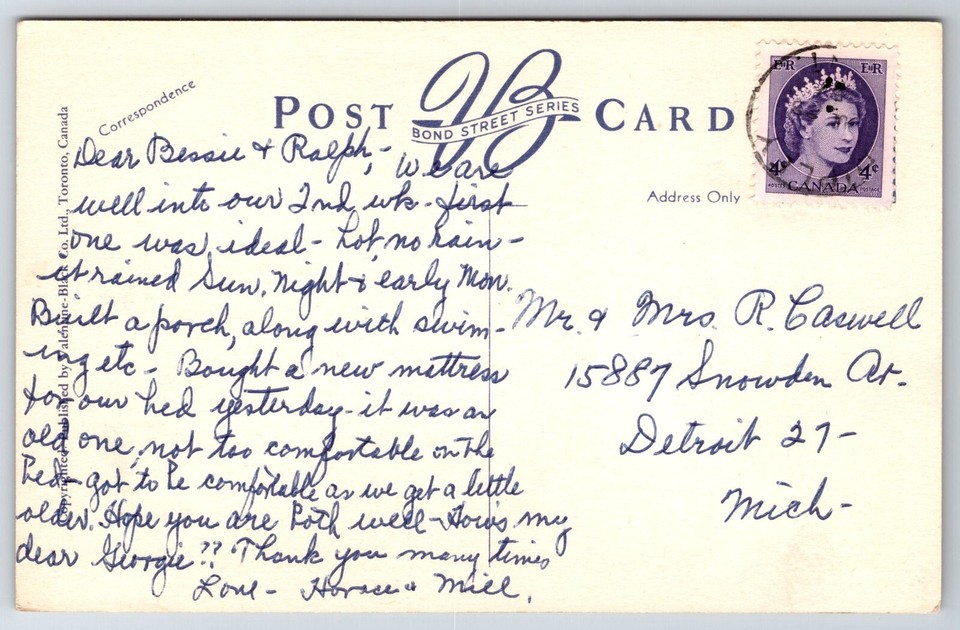 Correspondence
POST CARD
VB
BOND STREET SERIES
Address Only
E II R E II R
4¢ 4¢
POSTES CANADA POSTAGE
Copyrighted Published by Valentine-Black Co. Ltd., Toronto, Canada
Dear Bessie & Ralph, - We are
well into our 2nd wk - first
one was ideal - hot, no rain -
it rained Sun. Night & early Mon.
Built a porch, along with swim-
ing etc - Bought a new mattress
for our bed yesterday - it was an
old one, not too comfortable on the
bed - got to be comfortable as we get a little
older. Hope you are both well - How's my
dear Georgie?? Thank you many times
Love - Horace & Mill.
Mr. & Mrs. R. Caswell
15887 Snowden Av.
Detroit 27 -
Mich -